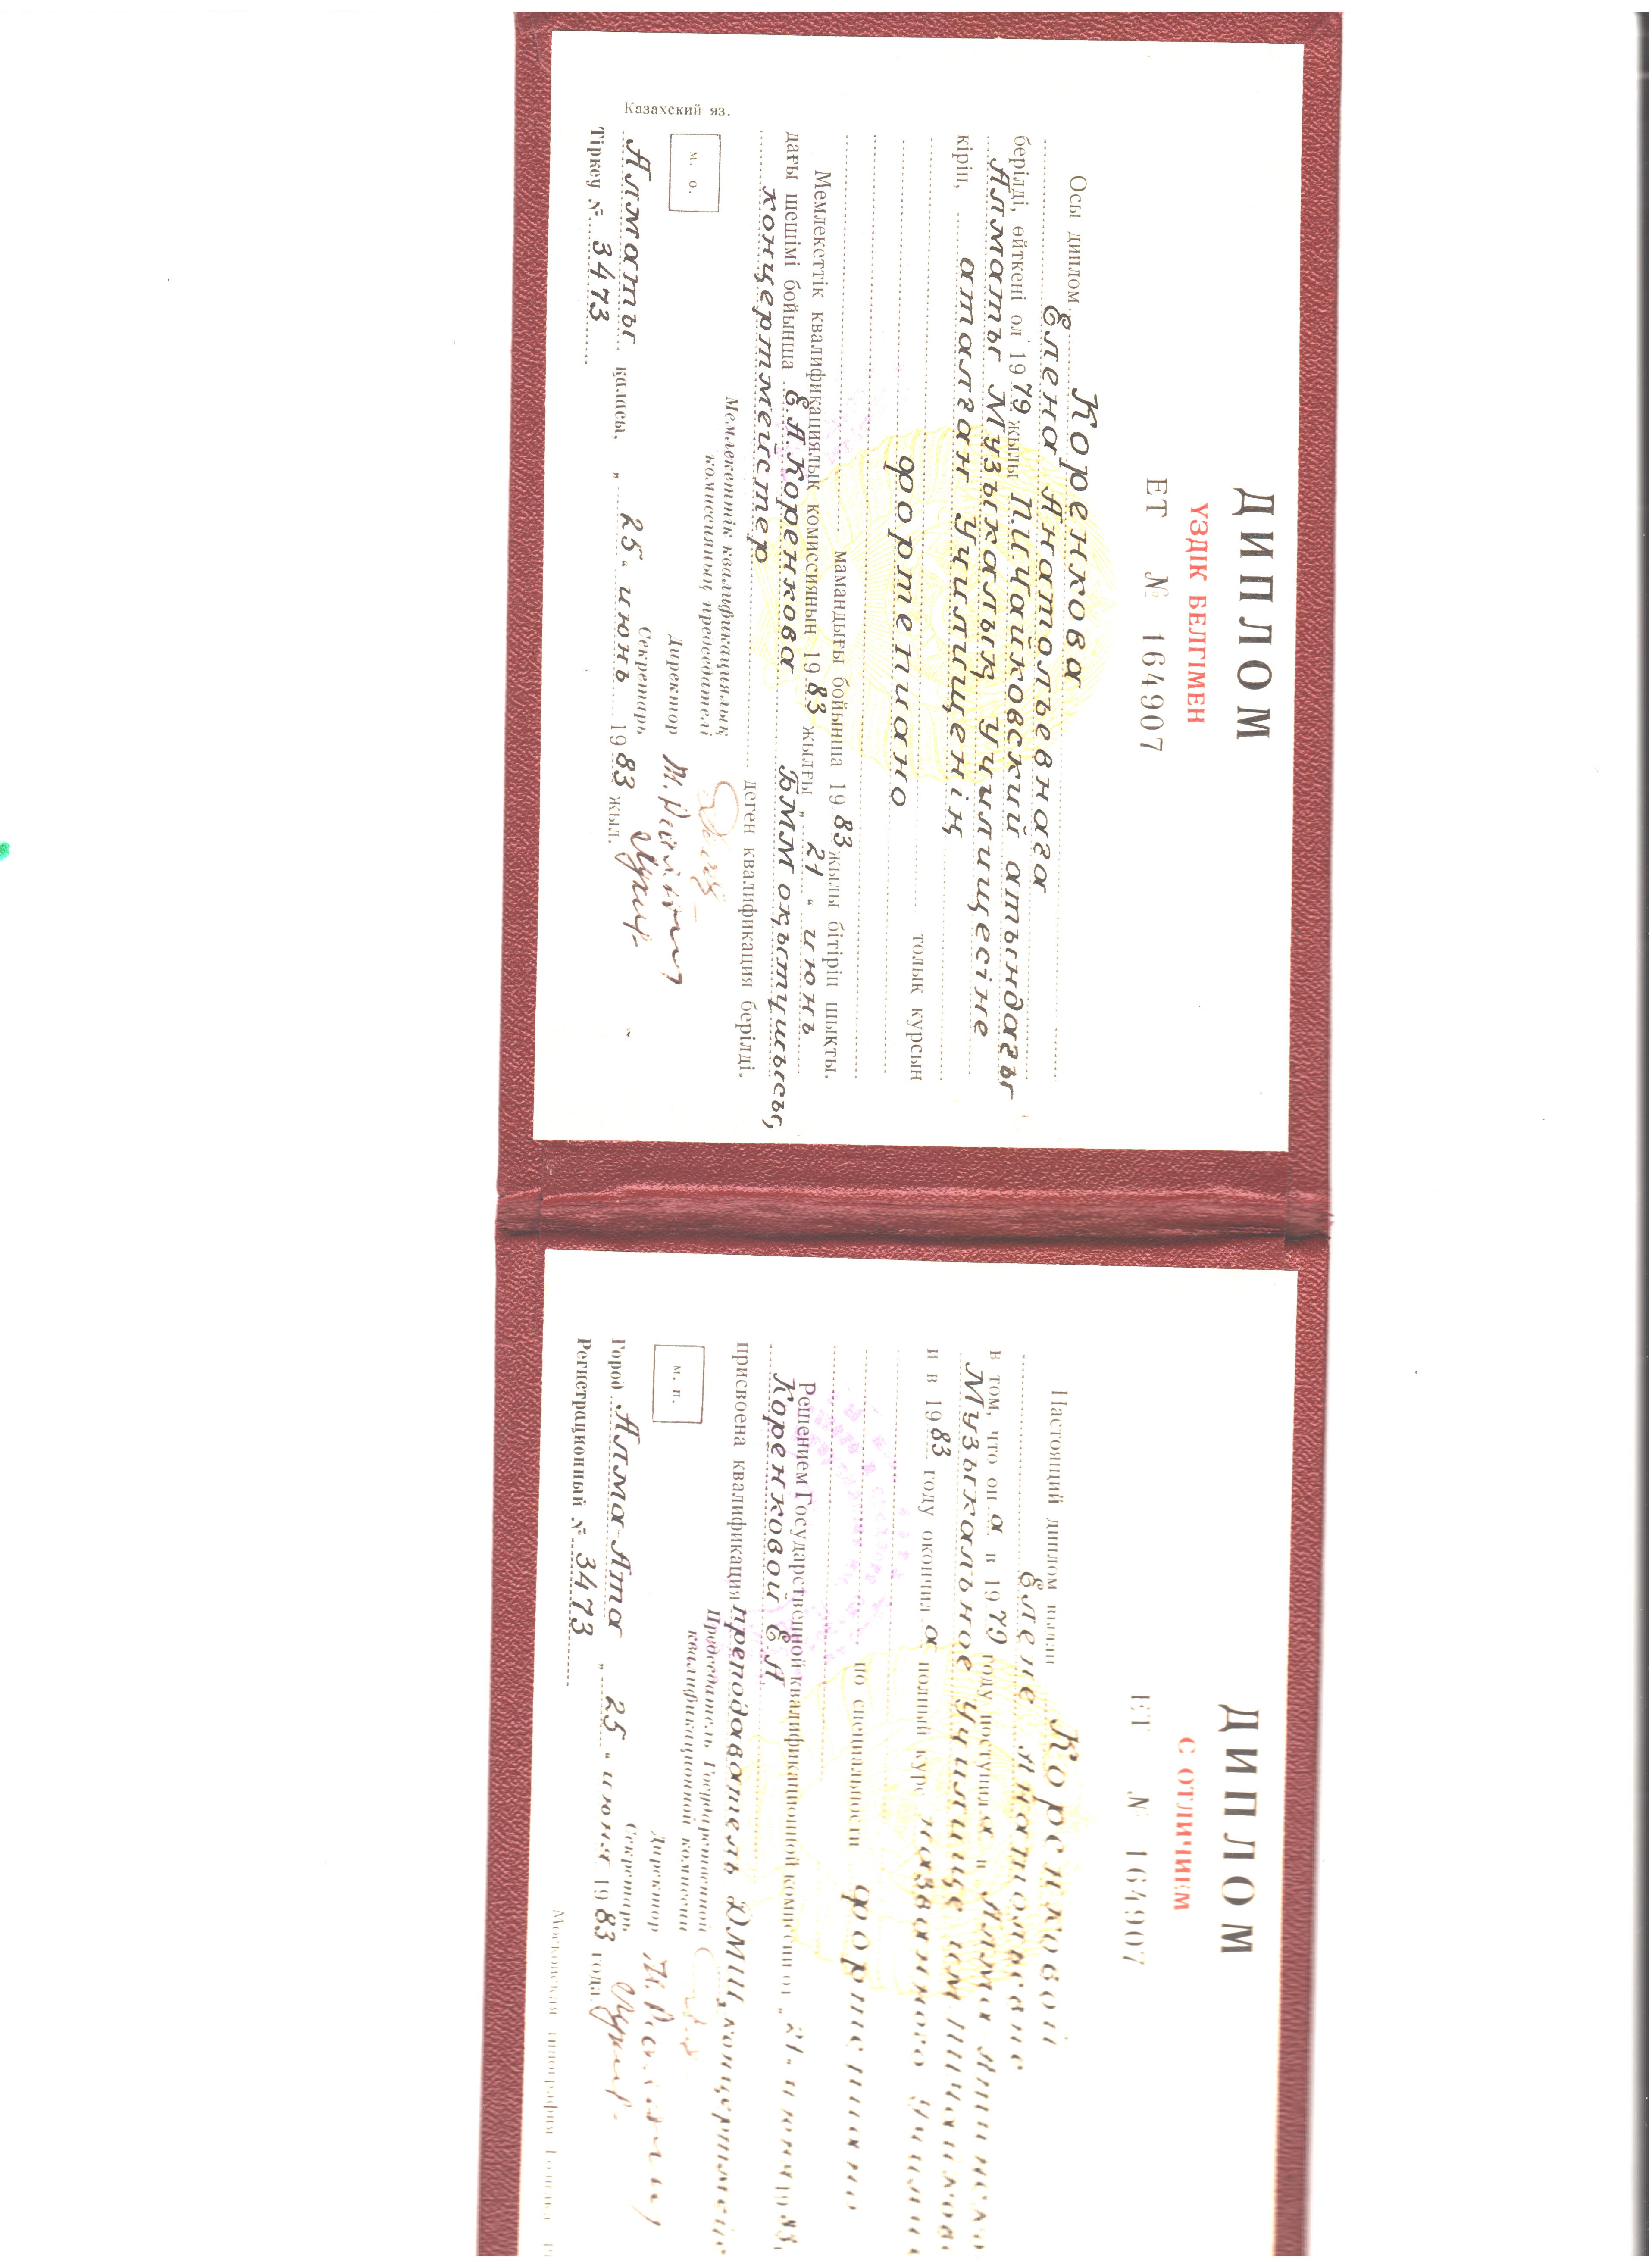 ДИПЛОМ
ҮЗДІК БЕЛГІМЕН
ЕТ № 164907
Осы диплом Коренкова
Елена Анатольевнаға
берілді, өйткені ол 1979 жылы П.И.Чайковский атындағы
Алматы Музыкалық училищесіне
кіріп, аталған училищенің
толық курсын
фортепиано
мамандығы бойынша 1983 жылы бітіріп шықты.
Мемлекеттік квалификациялық комиссияның 1983 жылғы „21“ июнь
дағы шешімі бойынша Е.А.Коренкова БММ оқытушысы,
концертмейстер деген квалификация берілді.
Мемлекеттік квалификациялық
комиссияның председателі
Директор
Секретарь
Казахский яз.
м. о.
Алматы қаласы, „25“ июнь 1983 жыл.
Тіркеу № 3473
ДИПЛОМ
С ОТЛИЧИЕМ
ЕТ № 164907
Настоящий диплом выдан Коренковой
Елене Анатольевне
в том, что он а в 1979 году поступил а в Алма-Атинско
Музыкальное училище им. П.И.Чайковс
и в 1983 году окончил а полный курс названного училищ
по специальности фортепиано
Решением Государственной квалификационной комиссии от „21“ июня 1983
Коренковой Е.А
присвоена квалификация преподаватель ДМШ, концертмейс
Председатель Государственной
квалификационной комиссии
Директор
Секретарь
м. п.
Город Алма-Ата „25“ июня 1983 года.
Регистрационный № 3473
Московская типография Гознака